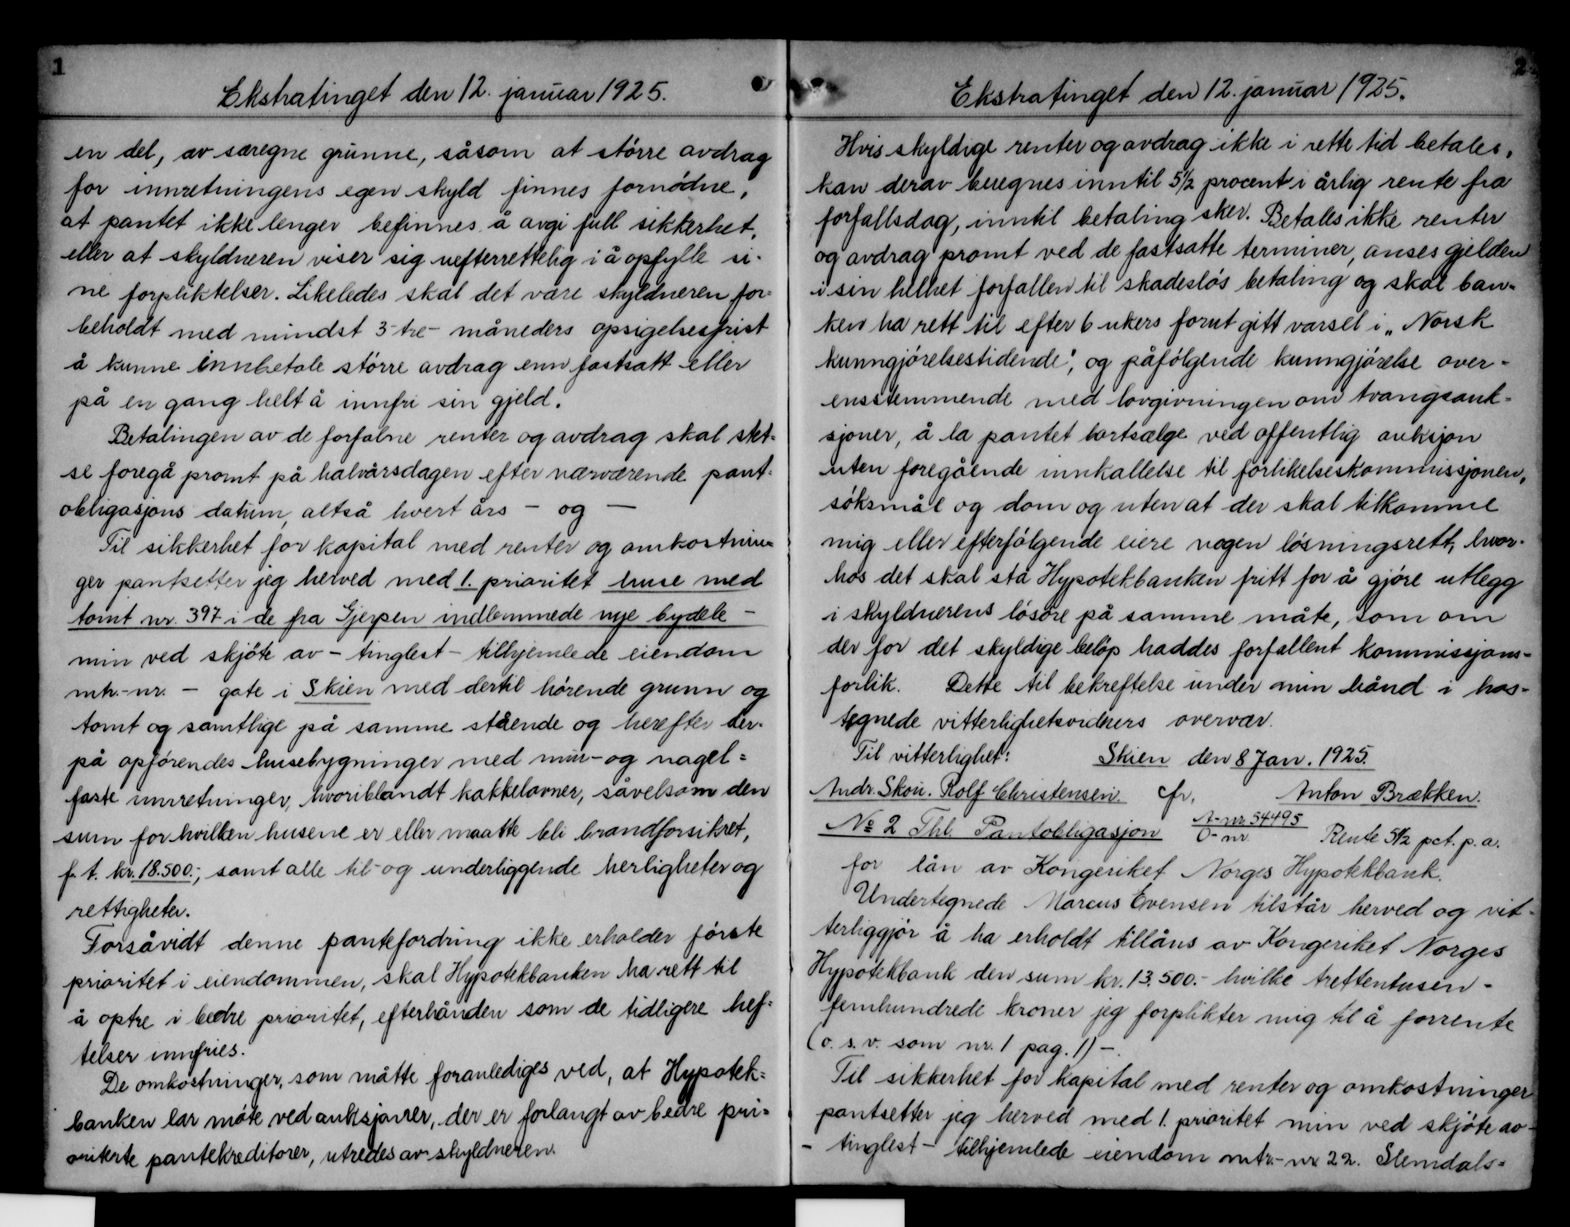 1
Ekstratinget den 12. januar 1925.
en del, av særegne grunne, såsom at större avdrag
for innretningens egen skyld finnes fornödne,
at pantet ikke lenger befinnes å avgi full sikkerhet,
eller at skyldneren viser sig uefterrettelig i å opfylle si-
ne forpliktelser. Likeledes skal det være skyldneren for-
beholdt med mindst 3-tre- måneders opsigelsesfrist
å kunne innbetale större avdrag enn fastsatt eller
på en gang helt å innfri sin gjeld.
Betalingen av de forfalne renter og avdrag skal sket-
se foregå promt på halvårsdagen efter nærværende pant-
obligasjons datum, altså hvert års - og -
Til sikkerhet for kapital med renter og omkostnin-
ger pantsetter jeg herved med 1. prioritet huse med
tomt nr. 397 i de fra Gjerpen indlemmede nye bydele -
min ved skjöte av - tinglest - tilhjemlede eiendom
mtr.-nr. - gate i Skien med dertil hörende grunn og
tomt og samtlige på samme stående og herefter der-
på opförendes husebygninger med mur- og nagel-
faste innretninger, hvoriblandt kakkelovner, såvelsom den
sum for hvilken husene er eller maatte bli brandforsikret,
f. t. kr. 18.500.-, samt alle til- og underliggende herligheter og
rettigheter.
Forsåvidt denne pantefordring ikke erholder förste
prioritet i eiendommen, skal Hypotekbanken ha rett til
å optre i bedre prioritet, efterhånden som de tidligere hef-
telser innfries.
De omkostninger, som måtte foranlediges ved, at Hypotek-
banken lar möte ved auksjoner, der er forlangt av bedre pri-
oriterte pantekreditorer, utredes av skyldneren.
2
Ekstratinget den 12. januar 1925.
Hvis skyldige renter og avdrag ikke i rette tid betales,
kan derav beregnes inntil 5½ procent i årlig rente fra
forfallsdag, inntil betaling sker. Betales ikke renter
og avdrag promt ved de fastsatte terminer, anses gjelden
i sin helhet forfallen til skadeslös betaling og skal ban-
ken ha rett til efter 6 ukers forut gitt varsel i „Norsk
kunngjörelsestidende", og påfölgende kunngjörelse over-
ensstemmende med lovgivningen om tvangsauk-
sjoner, å la pantet bortsælge ved offentlig auksjon
uten foregående innkallelse til forlikelseskommissjonen,
söksmål og dom og uten at der skal tilkomme
mig eller efterfölgende eiere nogen lösningsrett, hvor-
hos det skal stå Hypotekbanken fritt for å gjöre utlegg
i skyldnerens lösöre på samme måte, som om
der for det skyldige belöp haddes forfallent kommissjons-
forlik. Dette til bekreftelse under min hånd i hos-
tegnede vitterlighetsvidners overvær.
Til vitterlighet: Skien den 8 Jan. 1925.
Andr. Skou. Rolf Christensen. cfr. Anton Brækken.
№ 2 Thl. Pantobligasjon A-nr. 34495 O-nr Rente 5½ pct. p. a.
for lån av Kongeriket Norges Hypotekbank.
Undertegnede Marcus Evensen tilstår herved og vit-
terliggjör å ha erholdt tillåns av Kongeriket Norges
Hypotekbank den sum kr. 13.500.- hvilke trettentusen-
femhundrede kroner jeg forplikter mig til å forrente
(o. s. v. som nr. 1 pag. 1) -.
Til sikkerhet for kapital med renter og omkostninger
pantsetter jeg herved med 1. prioritet min ved skjöte av -
- tinglest - tilhjemlede eiendom mtr.-nr 22. Slemdals-